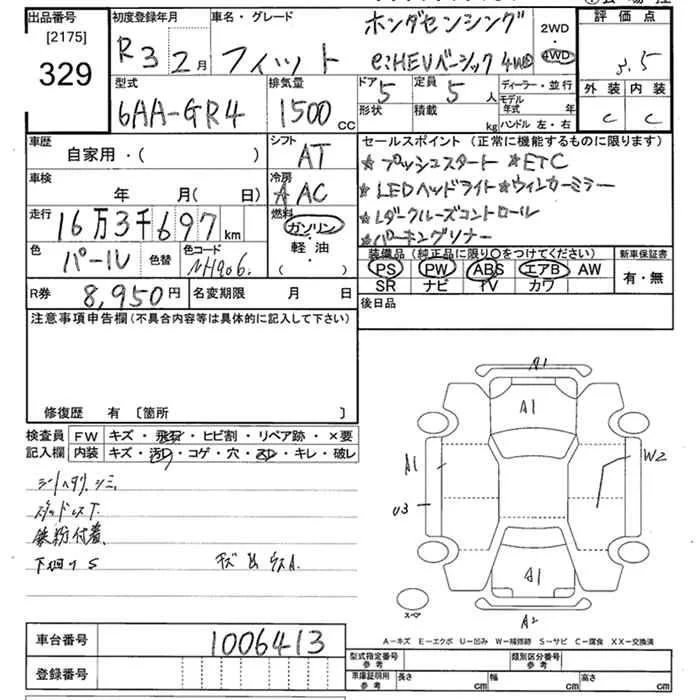 出品番号 初度登録年月 車名・グレード ホンダセンシング 2WD・4WD 評価点
[2175]
329 R3 2月 フィット e:HEVベーシック 4WD 3.5
型式 排気量 ドア 定員 ディーラー・並行 外装 内装
6AA-GR4 1500cc 5 5人 モデル年式 年 C C
形状 積載 kg ハンドル 左・右
車歴 シフト セールスポイント (正常に機能するものに限ります)
自家用・( ) AT ★プッシュスタート ★ETC
車検 冷房 ★LEDヘッドライト★ウィンカーミラー
年 月( 日) AAC ★レダークルーズコントロール
走行 燃料 ★パーキングソナー
16万3千697km ガソリン・軽・油・( )
色 パール 色替 色コード NH906.
装備品 (純正品に限り〇をつけてください) 新車保証書
PS PW ABS エアB AW 有・無
SR ナビ TV カワ
R券 8,950円 名変期限 月 日 後日品
注意事項申告欄(不具合内容等は具体的に記入して下さい)
修復歴 有 〔箇所 〕
検査員 FW キズ・飛石・ヒビ割・リペア跡・×要
記入欄 内装 キズ・汚レ・コゲ・穴・・キレ・破レ
鉄粉付着
下廻りS
A1
A1
A1 W2
U3
A1
A2
スペア
A-キズ E-エクボ U-凹み W-補修跡 S-サビ C-腐食 XX-交換済
車台番号 1006413
型式指定番号 参考 類別区分番号 参考
登録番号 車庫証明用 参考 長さ cm 幅 cm 高さ cm